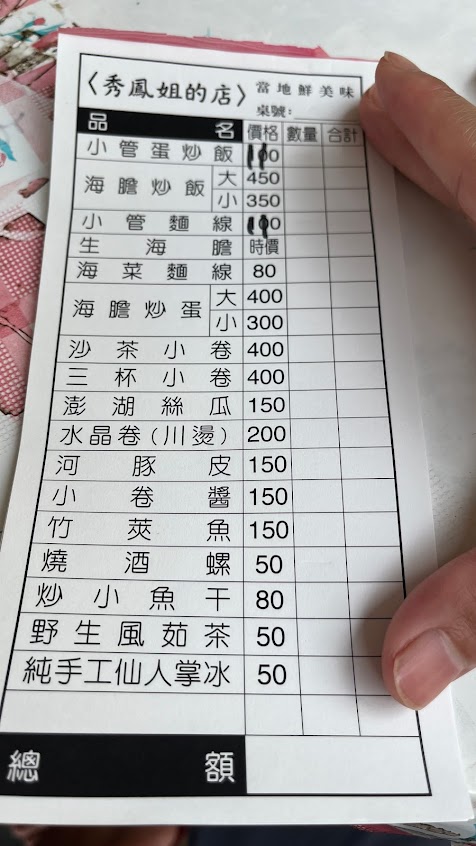 〈秀鳳姐的店〉當地鮮美味
桌號:
品名 價格 數量 合計
小管蛋炒飯
海膽炒飯 大 450
小 350
小管麵線
生海膽 時價
海菜麵線 80
海膽炒蛋 大 400
小 300
沙茶小卷 400
三杯小卷 400
澎湖絲瓜 150
水晶卷(川燙) 200
河豚皮 150
小卷醬 150
竹莢魚 150
燒酒螺 50
炒小魚干 80
野生風茹茶 50
純手工仙人掌冰 50
總額